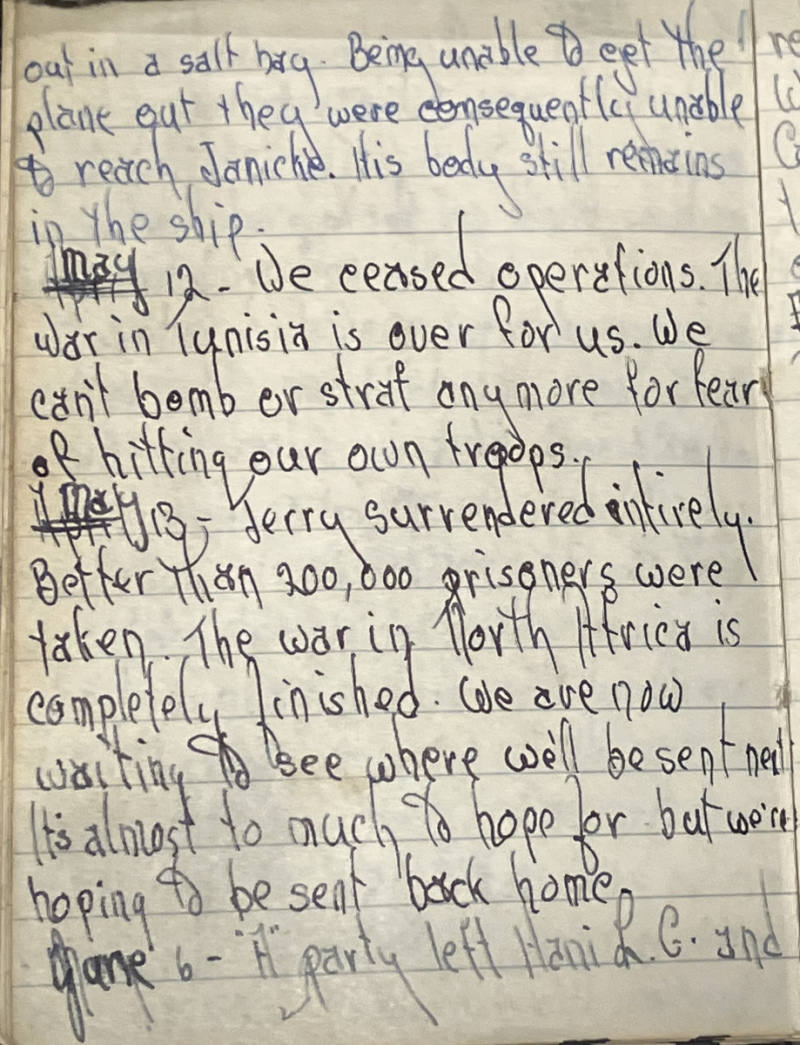 out in a salt bag. Being unable to get the
plane out they were consequently unable
to reach Janicke. His body still remains
in the ship.
May 12 - We ceased operations. The
war in Tunisia is over for us. We
can't bomb or straf anymore for fear
of hitting our own troops.
May 13 - Jerry surrendered intirely.
Better than 200,000 prisoners were
taken. The war in North Africa is
completely finished. We are now
waiting to see where we'll be sent next
It's almost to much to hope for but we're
hoping to be sent back home.
June 6 - "A" party left Hani L.G. and